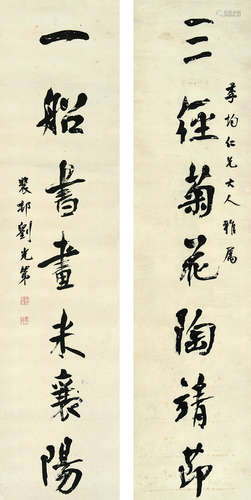 三徑菊花陶靖節
季均仁兄大人雅屬
一船書畫米襄陽
裴邨劉光第